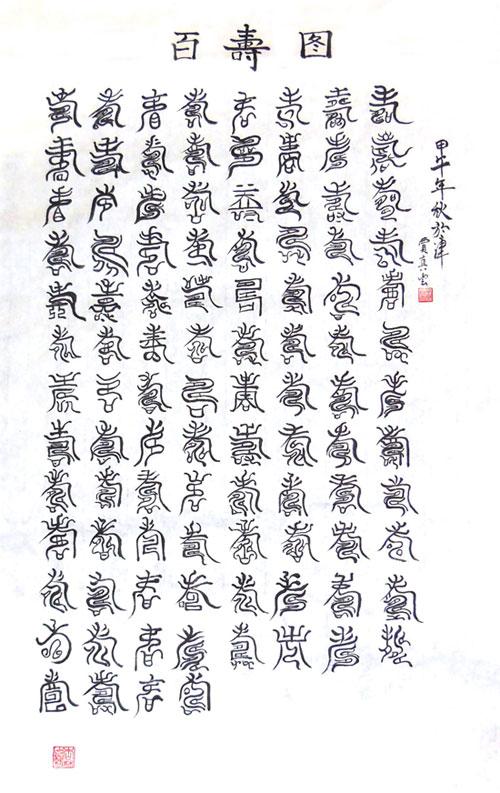 百壽图
甲午年秋於津
壽壽壽壽壽壽壽壽壽壽壽壽
壽壽壽壽壽壽壽壽壽壽壽壽
壽壽壽壽壽壽壽壽壽壽壽壽
壽壽壽壽壽壽壽壽壽壽壽壽
壽壽壽壽壽壽壽壽壽壽壽壽壽
壽壽壽壽壽壽壽壽壽壽壽壽壽
壽壽壽壽壽壽壽壽壽壽壽壽壽
壽壽壽壽壽壽壽壽壽壽壽壽壽